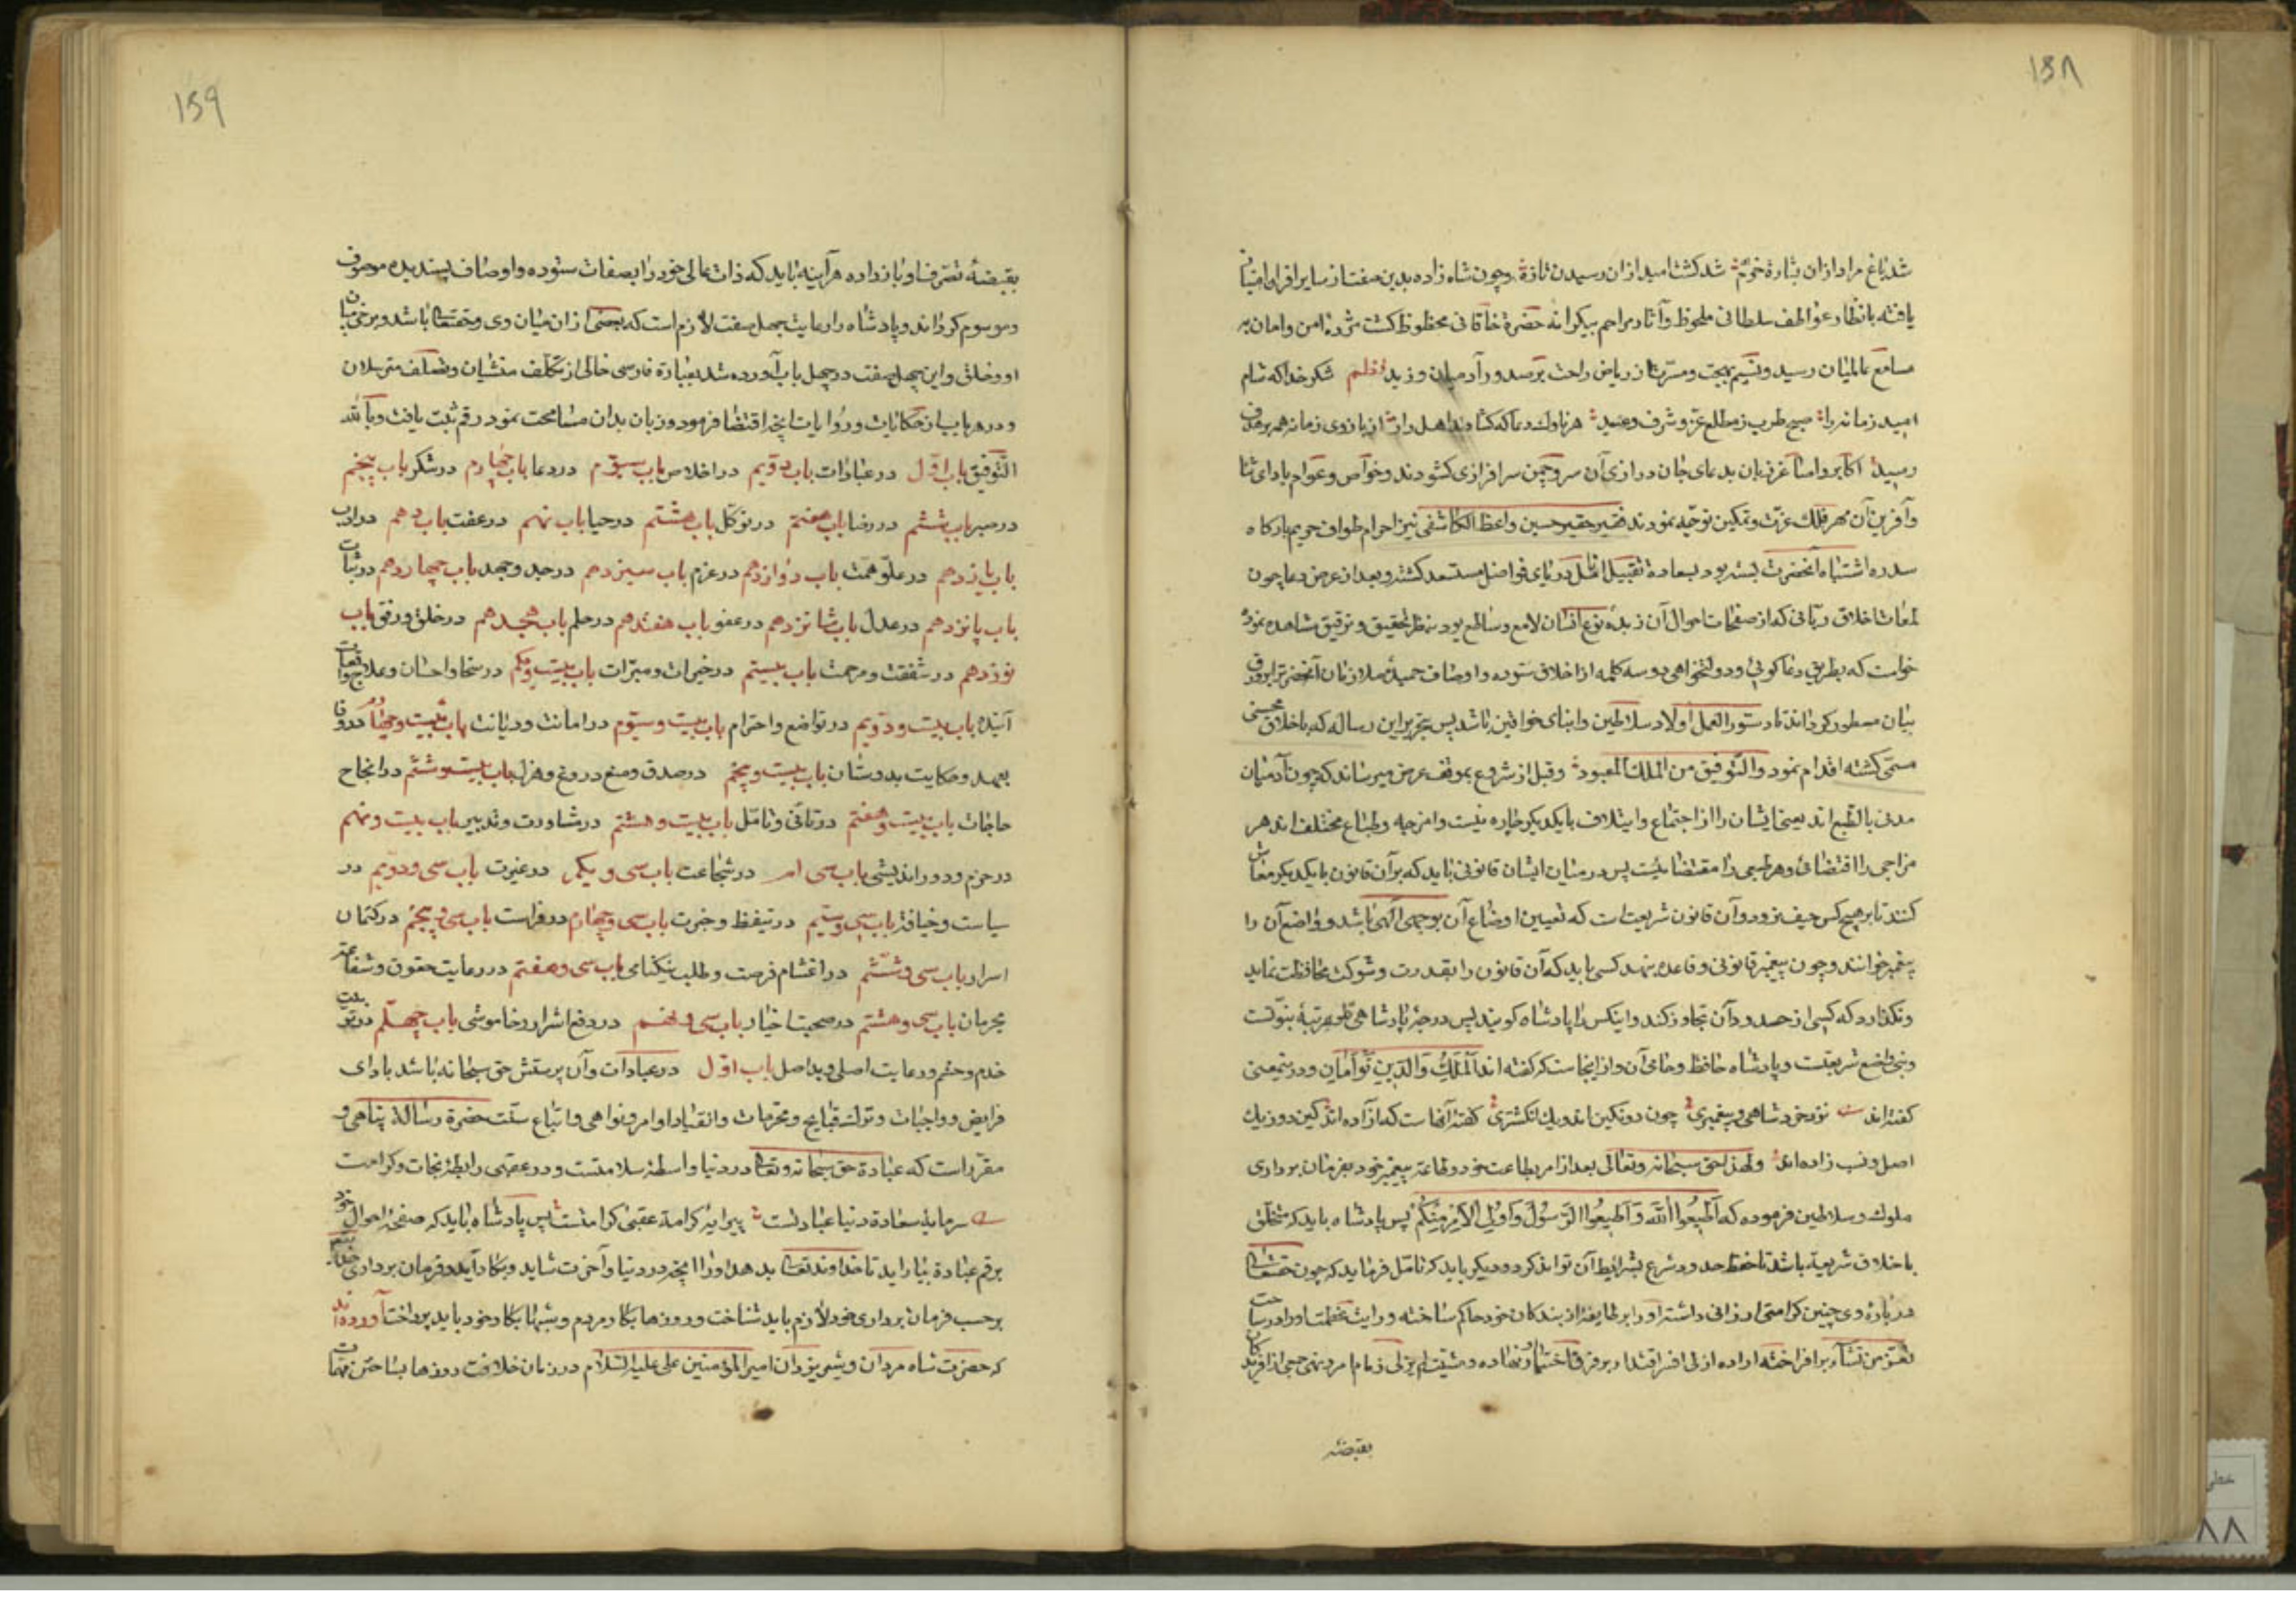 ۱۵۸
شد باغ مراد ازان بشارة خرم شد کشت امید ازان رسیدن تازه و چون شاه زاده بدین صفت از سایر اقران امتیاز
یافته بانظار عواطف سلطانی ملحوظ و آثار مراحم بیکرانه حضرة خاقانی محظوظ کشت مژده امن و امان به
مسامع عالمیان رسید و نسیم بهجت و مسرت از ریاض راحت بر صدور آدمیان وزید نظم شکر خدا که شام
امید زمانه را صبح طرب ز مطلع عز و شرف دمید هر ناوک دعا که کشادند اهل راز از بازوی زمانه همه بر هدف
رسید اکابر و اساغر زبان بدعای جان درازی آن سرو چمن سرافرازی کشودند و خواص و عوام بادای ثنا
و آفرین آن مهر فلک عزت و تمکین توجه نمودند فقیر حقیر حسین واعظ الکاشفی نیز احرام طواف حریم بارکاه
سدره اشتباه آنحضرت بسته بود بسعادة تقبیل انامل دریای فواضل مستسعد کشته و بعد از عرض دعا چون
لمعات اخلاق ربانی که از صفحات احوال آن زبده نوع انسان لامع و ساطع بود بنظر تحقیق و توفیق مشاهده نمود
خواست که بطریق دعاکوئی و دولتخواهی دو سه کلمه از اخلاق ستوده و اوصاف حمیده ملازمان آنحضرت بر ورق
بیان مسطور کرداند تا دستور العمل اولاد سلاطین و ابنای خواقین باشد پس بتحریر این رساله که باخلاق محسنی
مسمی کشته اقدام نمود و التوفیق من الملک المعبود و قبل از شروع بموقف عرض میرساند که چون آدمیان
مدنی بالطبع اند یعنی ایشان را از اجتماع و ایتلاف با یکدیکر چاره نیست و امزجه و طباع مختلف اند هر
مزاجی را اقتضائی و هر طبعی را مقتضائیست پس در میان ایشان قانونی باید که بر آن قانون با یکدیکر معاش
کنند تا بر هیچ کس حیف نرود و آن قانون شریعت است که تعیین اوضاع آن بوحی الهی باشد و واضع آن را
پیغمبر خوانند و چون پیغمبر قانونی و قاعده بنهد کسی باید که آن قانون را بقدرت و شوکت محافظت نماید
و نکذارد که کسی از حدود آن تجاوز کند و اینکس را پادشاه کویند پس درجهٔ پادشاهی تلو مرتبهٔ نبوتست
و نبی واضع شریعتست و پادشاه حافظ و حامی آن و از اینجاست که کفته اند الملک و الدین توأمان و در ینمعنی
کفته اند نزد خرد شاهی و پیغمبری چون دو نکین اند و یک انکشتری کفته آنهاست که آزاده اند کین دو ز یک
اصل و نسب زاده اند ولهذا حق سبحانه و تعالی بعد از امر بطاعت خود و طاعة پیغمبر خود بفرمان برداری
ملوک و سلاطین فرموده که اَطیعُوا اللهَ وَ اَطیعُوا الرَّسُولَ وَ اُولِی الاَمْرِ مِنْکُم پس پادشاه باید که متخلق
باخلاق شریعة باشد تا حفظ حدود شرع بشرایط آن تواند کرد و دیکر باید که تامل فرماید که چون حقتعالی
در بارهٔ وی چنین کرامتی ارزانی داشته او را بر طایفهٔ از بندکان خود حاکم ساخته و رایت عظمت او در ساحت
تعز من تشاء بر افراخته اراده ازلی افسر اقتدار بر فرق اختیار او نهاده و مشیت لم یزلی زمام امر و نهی جمعی از آفریدکان
بقبضه
۱۵۹
بقبضهٔ تصرف او باز داده هر آینه باید که ذات عالی خود را بصفات ستوده و اوصاف پسندیده موصوف
و موسوم کرداند و پادشاه را رعایت چهل صفت لازم است که بعضی ازان میان وی و حقتعالی باشد و برخی میان
او و خلق و این چهل صفت در چهل باب آورده شد بعبارة فارسی خالی از تکلف منشیان و تصلف مترسلان
و در هر باب از حکایات و روایات انچه اقتضا فرمود و زبان بدان مسامحت نمود رقم ثبت یافت و بالله
التوفیق باب اول در عبادات باب دویم در اخلاص باب سیوم در دعا باب چهارم در شکر باب پنجم
در صبر باب ششم در رضا باب هفتم در توکل باب هشتم در حیا باب نهم در عفت باب دهم در ادب
باب یازدهم در علو همت باب دوازدهم در عزم باب سیزدهم در جد و جهد باب چهاردهم در ثبات
باب پانزدهم در عدل باب شانزدهم در عفو باب هفتدهم در حلم باب هجدهم در خلق و رفق باب
نوزدهم در شفقت و مرحمت باب بیستم در خیرات و مبرات باب بیست و یکم در سخا و احسان و علاج
آینده باب بیست و دویم در تواضع و احترام باب بیست و سیوم در امانت و دیانت باب بیست و چهارم در وفا
بعهد و حکایت بد و نشان باب بیست و پنجم در صدق و منع دروغ و هزل باب بیست و ششم در انجاح
حاجات باب بیست و هفتم در تانی و تامل باب بیست و هشتم در مشاورت و تدبیر باب بیست و نهم
در حزم و دور اندیشی باب سی ام در شجاعت باب سی و یکم در غیرت باب سی و دویم در
سیاست باب سی و سیم در تیقظ و خبرت باب سی و چهارم در فراست باب سی و پنجم در کتمان
اسرار باب سی و ششم در اغتنام فرصت و طلب نیکنامی باب سی و هفتم در رعایت حقوق و شفاعت
مجرمان باب سی و هشتم در صحبت اخیار باب سی و نهم در دفع اشرار و خاموشی باب چهلم در تربیت
خدم و حشم و رعایت اصلی و بد اصل باب اول در عبادات و آن پرستش حق سبحانه باشد بادای
فرایض و واجبات و ترک قبایح و محرمات و انقیاد اوامر و نواهی و اتباع سنت حضرة رسالة پناهی و
مقرر است که عبادة حق سبحانه و تعالی در دنیا واسطهٔ سلامتست و در عقبی رابطهٔ نجات و کرامت
سرمایهٔ سعادة دنیا عبادتست پیرایهٔ کرامة عقبی کرامتست پس پادشاه باید که صفحهٔ احوال خود
برقم عبادة بیاراید تا خداوند تعالی بدهد او را انچه در دنیا و آخرت شاید و بکار آید و فرمان برداری
بر حسب فرمان برداری خود لازم باید شناخت و روزها بکار مردم و شبها بکار خود باید پرداخت آورده اند
که حضرت شاه مردان و شیر یزدان امیر المؤمنین علی علیه السلام در زمان خلافت روزها بساختن مهمات